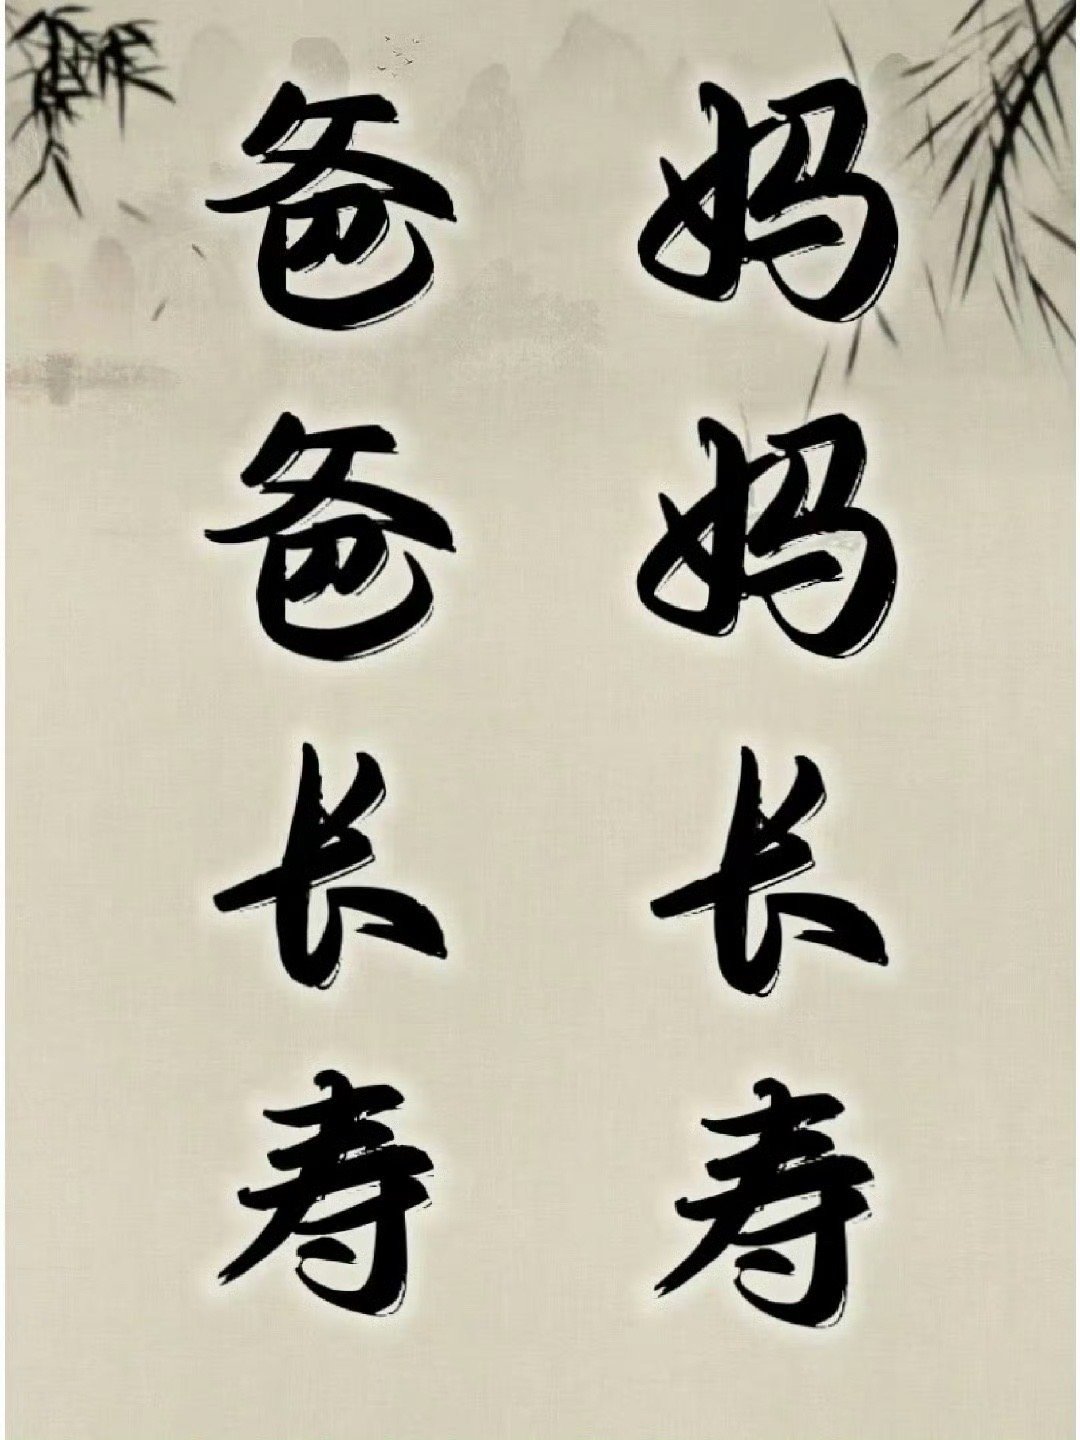 爸爸长寿
妈妈长寿